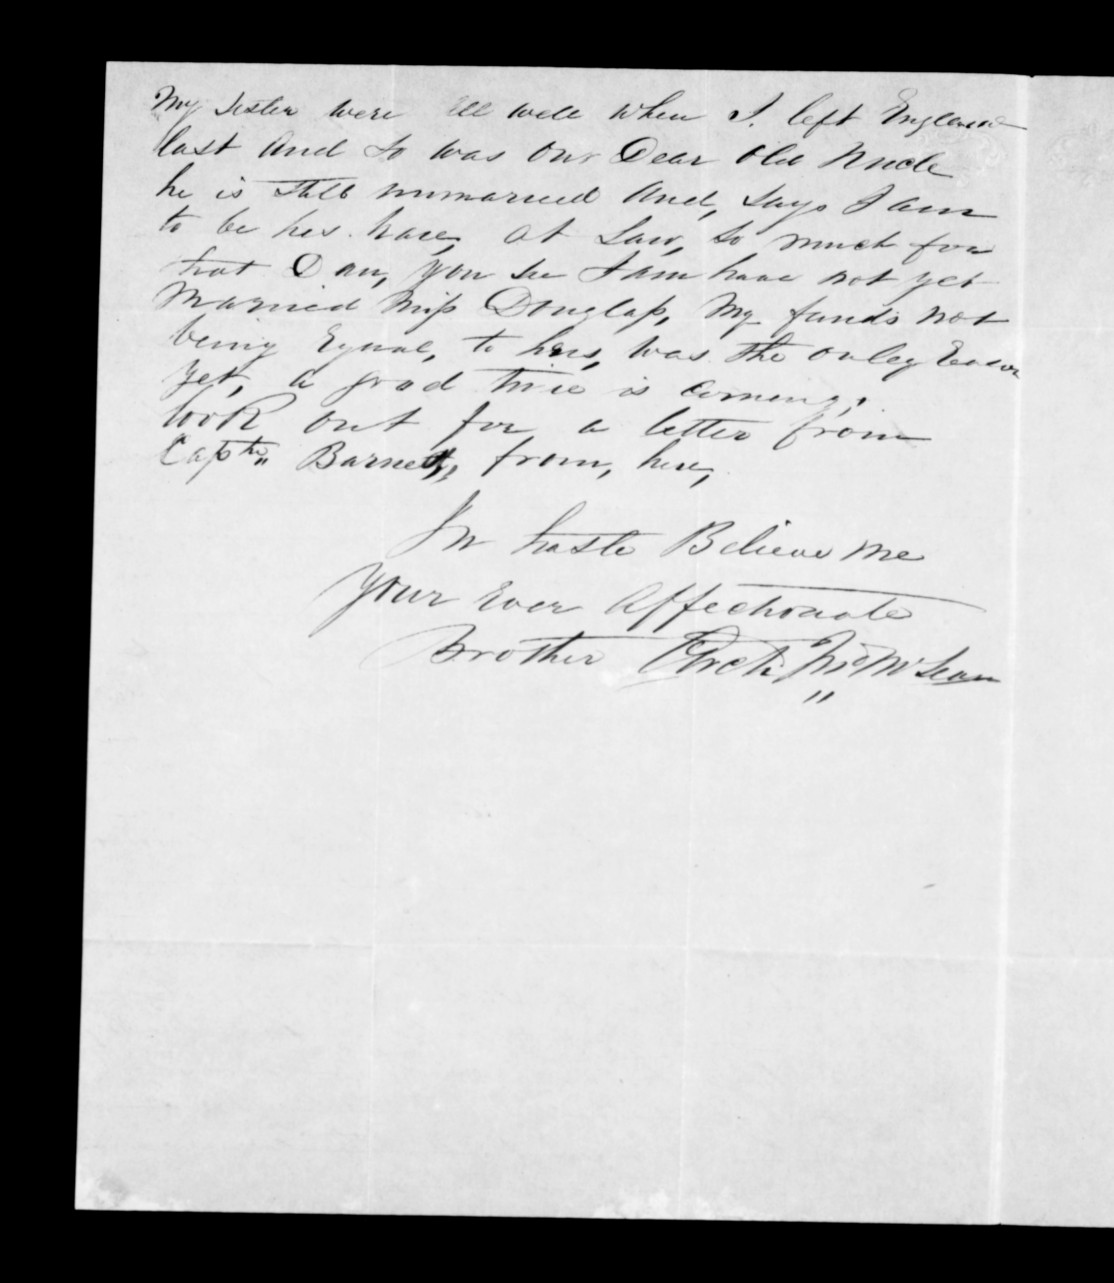 My Sister were all well when I left England
last and so was our Dear old Uncle
he is still unmarried and, says I am
to be his haie, at Law, so much for
that Dan, you see I am have not yet
Married Miss Douglass, My funds not
being Equal, to hers, was the onley Reason
yet, a good time is coming,
look out for a letter from
Captn Barnett, from, here,
In haste Believe me
Your Ever Affectionate
Brother Archd McLean